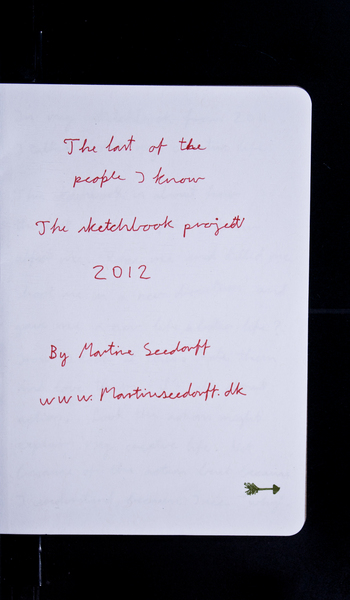 The last of the
people I know
The sketchbook project
2012
By Martine Seedorff
www.Martineseedorff.dk